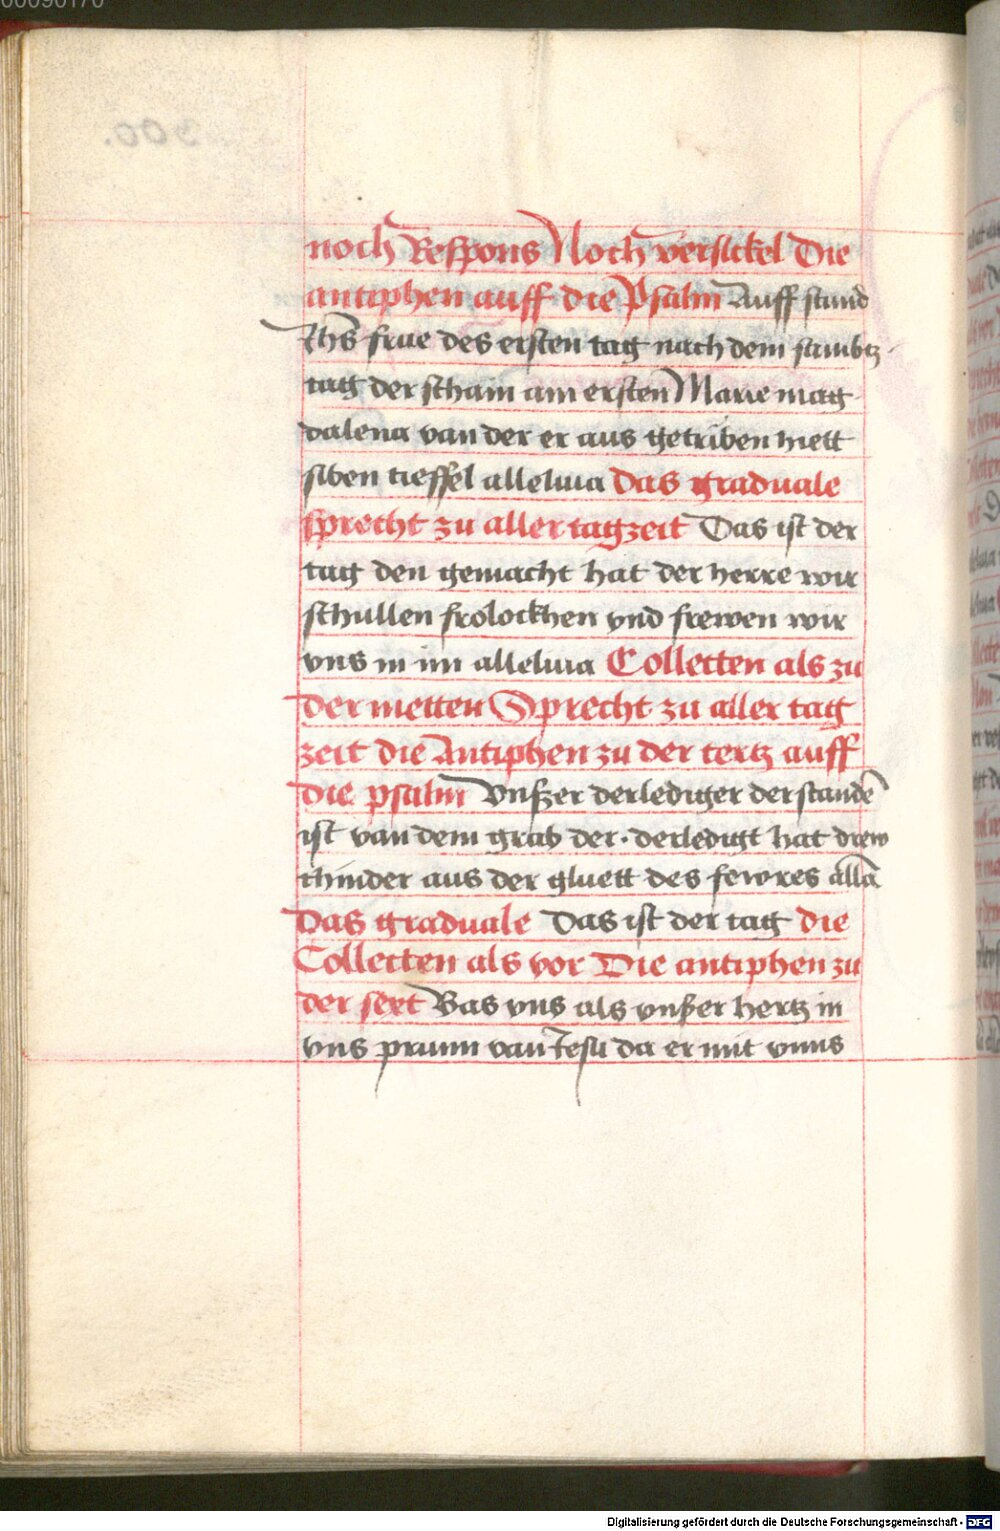 00090170
300.
noch Respons Noch versickel Die
antiphen auff die Psalm Auff stund
Jhs frue des ersten tag nach dem sambtz
tag der schain am ersten Marie mag
dalena van der er aus getriben hett
siben tieffel alleluia Das graduale
sprecht zu aller tagzeit Das ist der
tag den gemacht hat der herre wir
schullen frolockhen vnd frewen wir
vns in im alleluia Collecten als zu
der metten Sprecht zu aller tag
zeit die Antiphen zu der tertz auff
die psalm Vnßer derlediger derstandē
ist van dem grab der · derledigt hat drew
chinder aus der gluett des fewres allā
Das graduale Das ist der tag die
Collecten als vor Die antiphen zu
der sext Bas vns als vnßer hertz in
vns prunn van Jesu da er mit vnns
Digitalisierung gefördert durch die Deutsche Forschungsgemeinschaft - DFG